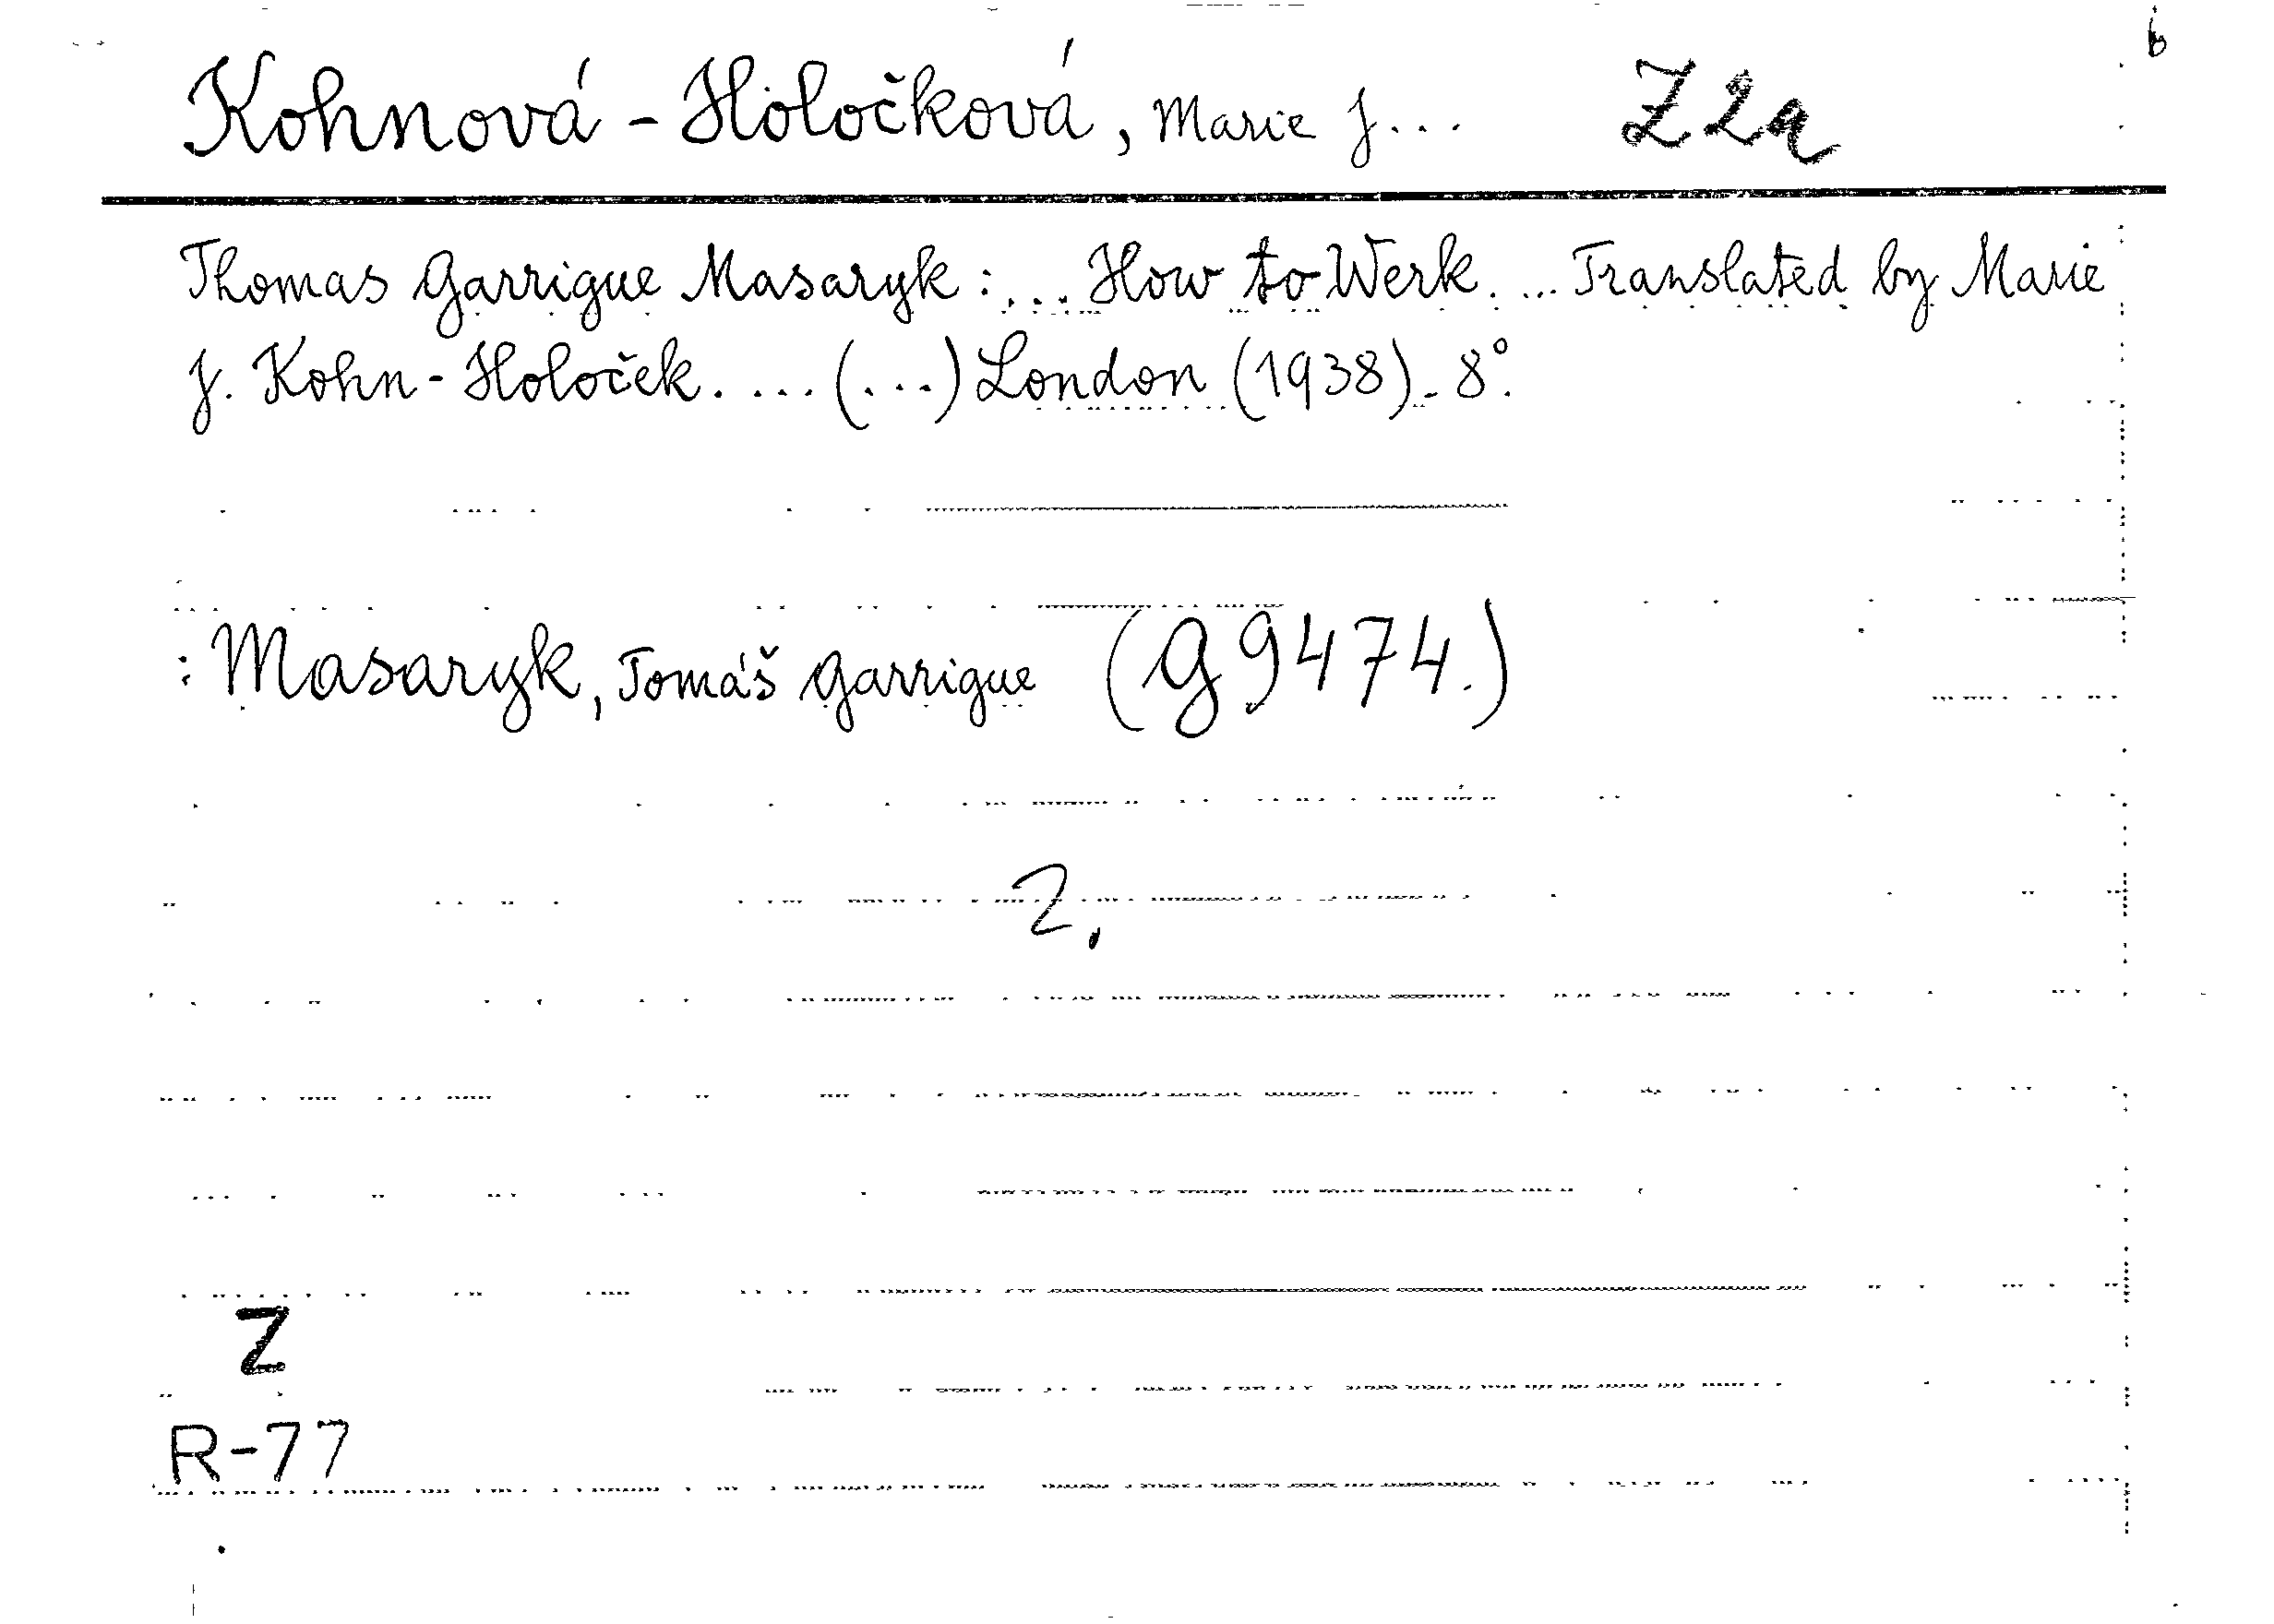 b
Kohnová-Holočková, Marie J... Z2a
Thomas Garrigue Masaryk:... How to Werk. ... Translated by Marie
J. Kohn-Holoček. ... (...) London (1938). 8°.
: Masaryk, Tomáš Garrigue (G 9474.)
2.
Z
R-77